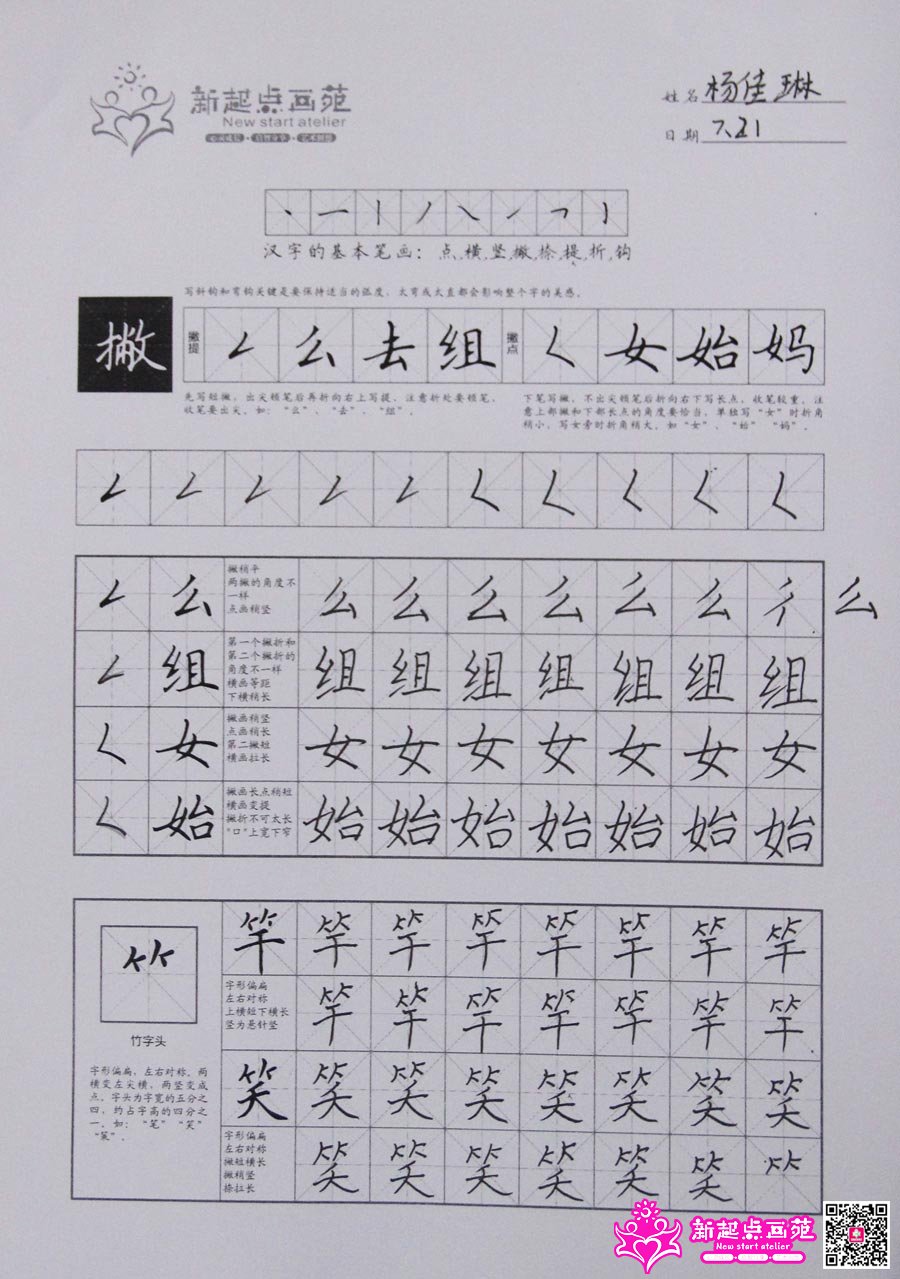 新起点画苑
New start atelier
姓名 杨佳琳
日期 7.21
汉字的基本笔画：点,横,竖,撇,捺,提,折,钩
写斜钩和弯钩关键是要保持适当的弧度，太弯或太直都会影响整个字的美感。
撇
撇提 𠃋 么 去 组 撇点 𡿨 女 始 妈
先写短撇，出尖顿笔后再折向右上写提，注意折处要顿笔，
收笔要出尖。如：“么”、“去”、“组”。
下笔写撇，不出尖顿笔后折向右下写长点，收笔较重，注
意上部撇和下部长点的角度要恰当，单独写“女”时折角
稍小，写女旁时折角稍大。如“女”、“始”“妈”。
𠃋 𠃋 𠃋 𠃋 𠃋 𡿨 𡿨 𡿨 𡿨 𡿨
𠃋 么
撇稍平
两撇的角度不
一样
点画稍竖
么 么 么 么 么 么 彳 么
𠃋 组
第一个撇折和
第二个撇折的
角度不一样
横画等距
下横稍长
组 组 组 组 组 组 组
𡿨 女
撇画稍竖
点画稍长
第二撇短
横画拉长
女 女 女 女 女 女 女
𡿨 始
撇画长点稍短
横画变提
撇折不可太长
“口”上宽下窄
始 始 始 始 始 始 始
⺮
竹字头
字形偏扁，左右对称。两
横变左尖横，两竖变成
点。字头为字宽的五分之
四，约占字高的四分之
一。如：“笔”“笑”
竿 竿 竿 竿 竿 竿 竿 竿
字形偏扁
左右对称
上横短下横长
竖为悬针竖
竿 竿 竿 竿 竿 竿 竿
笑 笑 笑 笑 笑 笑 笑 笑
字形偏扁
左右对称
撇短横长
撇稍竖
捺拉长
笑 笑 笑 笑 笑 笑 ⺮
新起点画苑
New start atelier